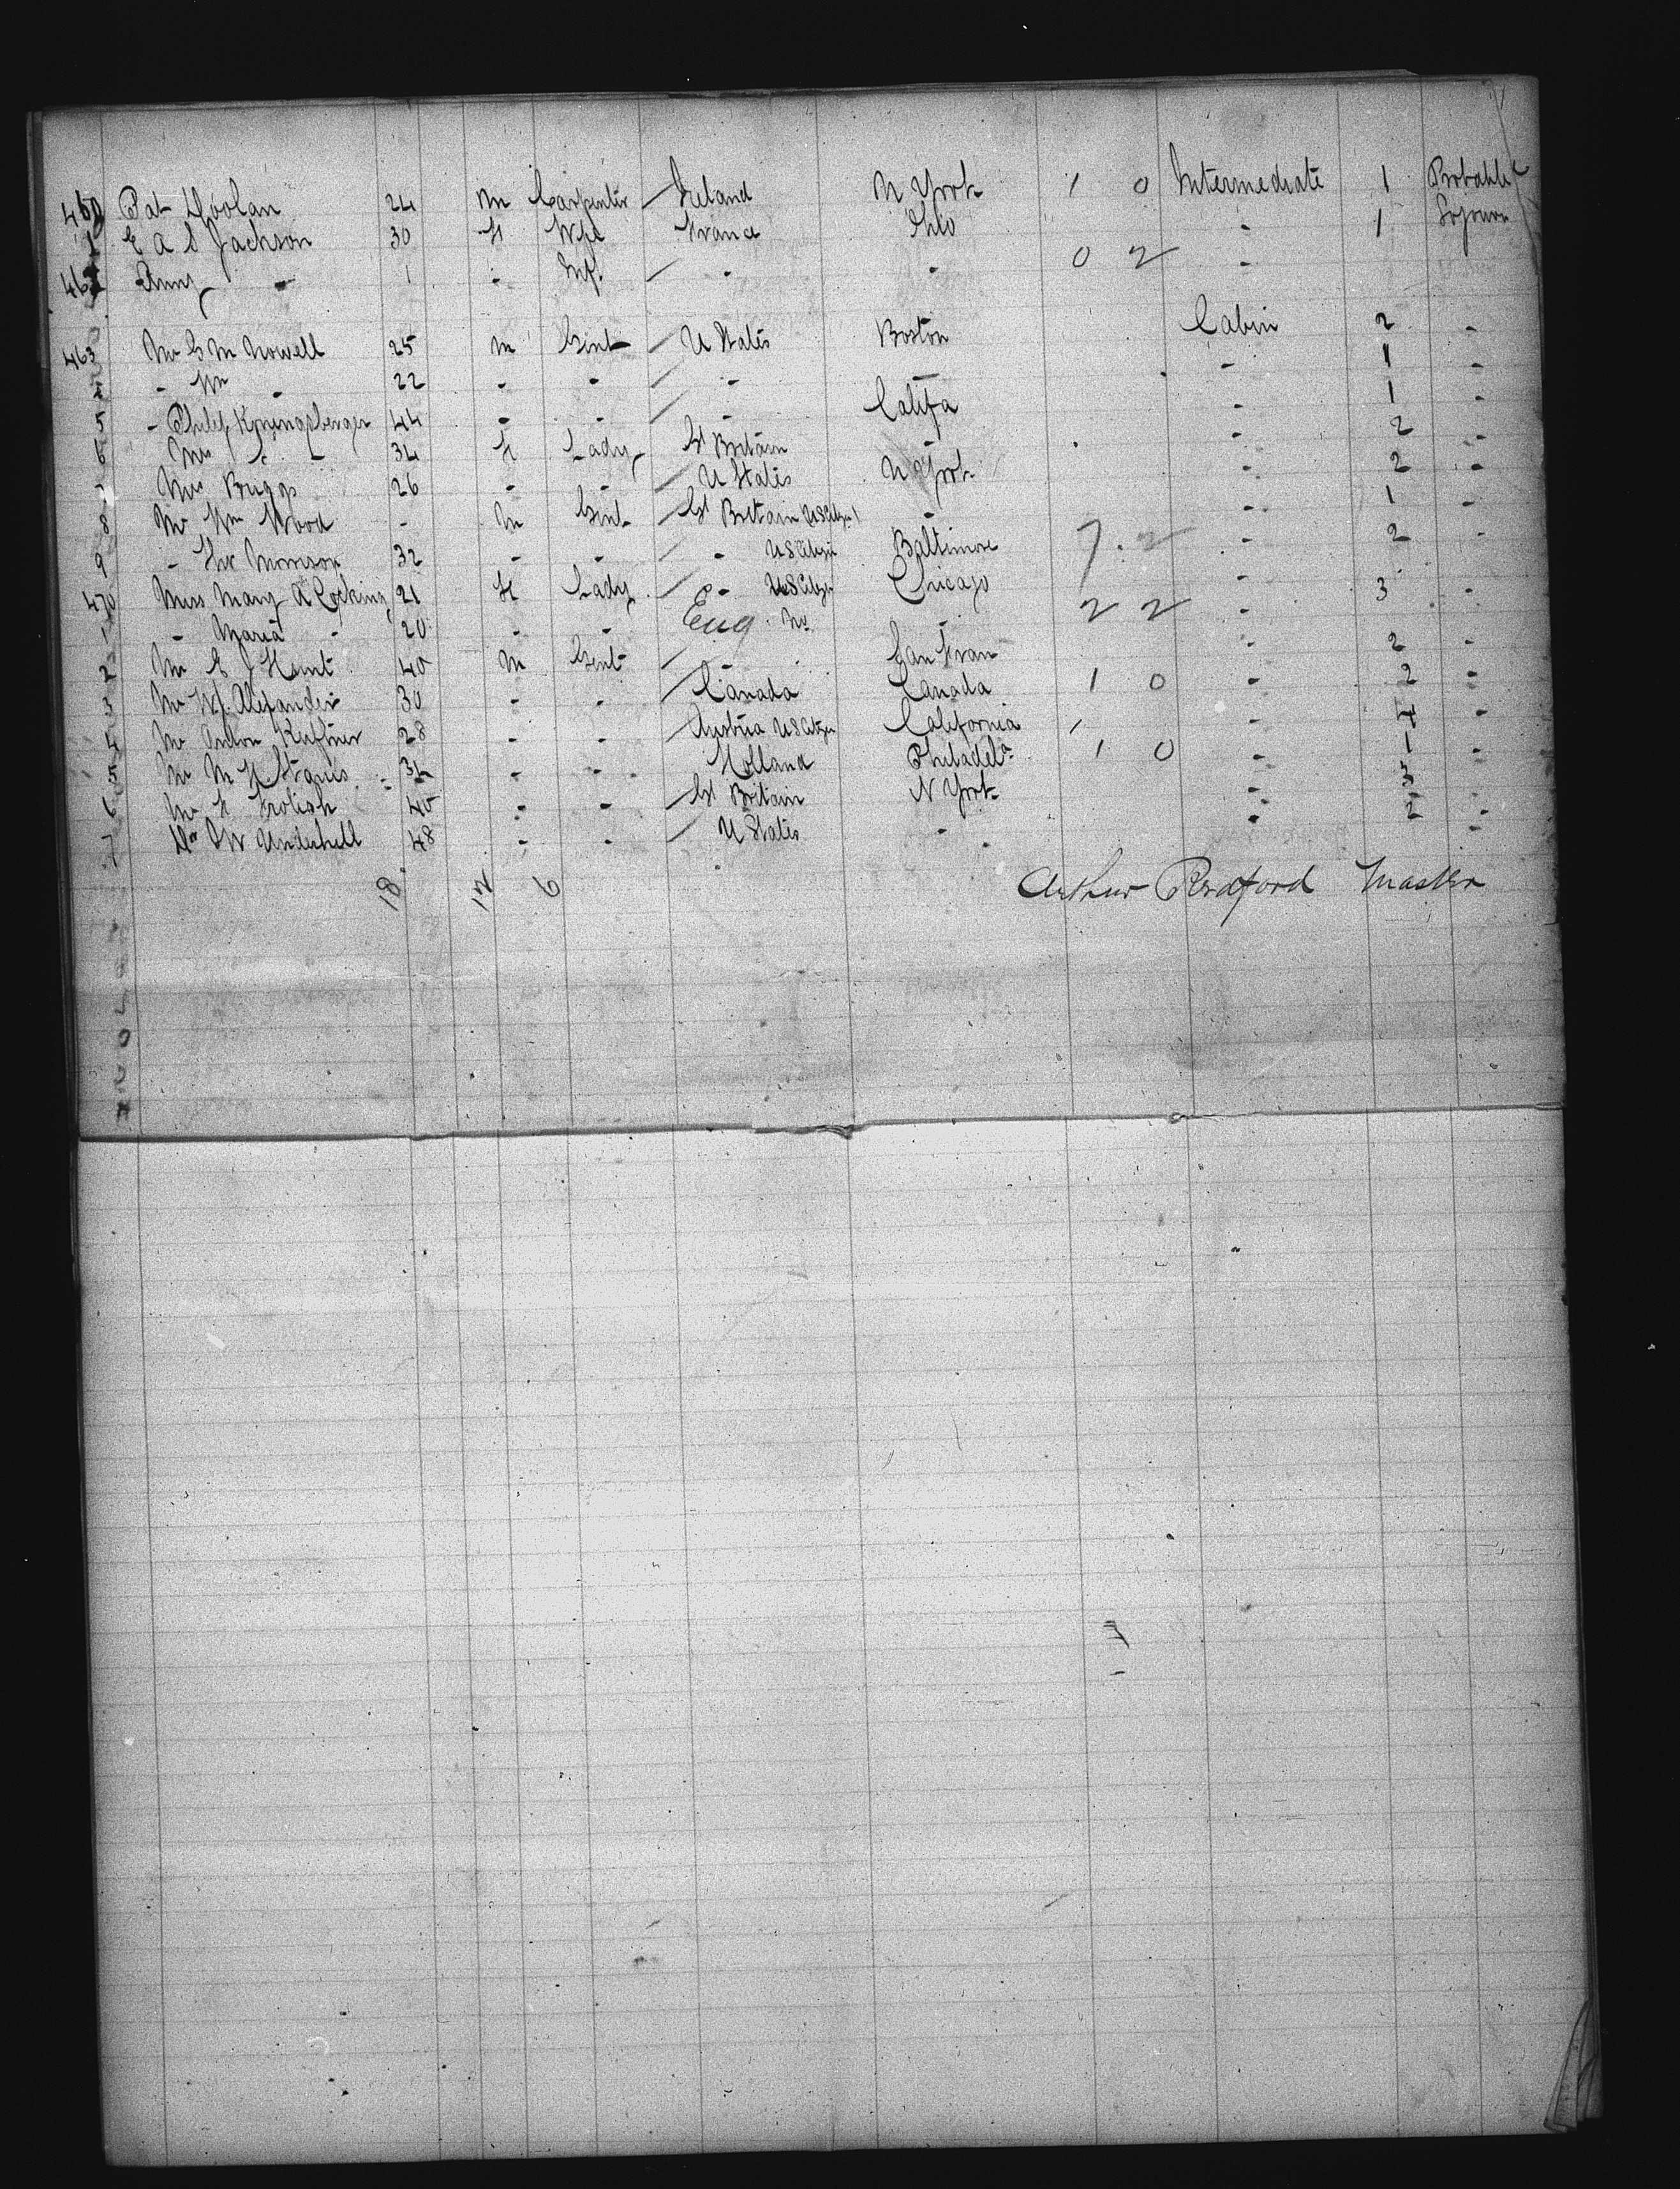 460 Pat Doolan 24 M Carpenter / Ireland N York 1 0 Intermediate 1 Probable
1 E A S Jackson 30 F Wife France Ohio - 1 Sojourn
462 Amy - 1 - Inf. / - - 0 2 -
463 Mr G M Nowell 25 M Gent / U States Boston Cabin 2 -
- Wm - 22 - - / - - - 1 -
5 - Philip 44 - - / - Califa - 1 -
6 Mrs - 34 F Lady Gt Britain - - 2 -
7 Mrs Briggs 26 - - / U States N York - 2 -
8 Mr Wm Wood - M Gent / Gt Britain US Citizen - - 1 -
9 - Morrison 32 - - / - US Citizen Baltimore 7.2 - 2
470 Miss Mary A Cocking 21 F Lady / - US Citizen Chicago - 3 -
- Maria - 20 - - Eng. - 2 2 -
2 Mr E J Hunt 40 M Gent / - San Fran - 2 -
3 Mr W. Alexander 30 - - / Canada Canada 1 0 - 2 -
4 Mr Anton Kuffner 28 - - / Austria US Citizen California / - 4 -
5 Mr M H 34 - - Holland Philadela 1 0 - 1 -
6 Mr F Frolich 40 - - / Gt Britain N York - 3
7 Dr W Underhill 48 - - / U States - - 2 -
18 12 6
Arthur Redford Master